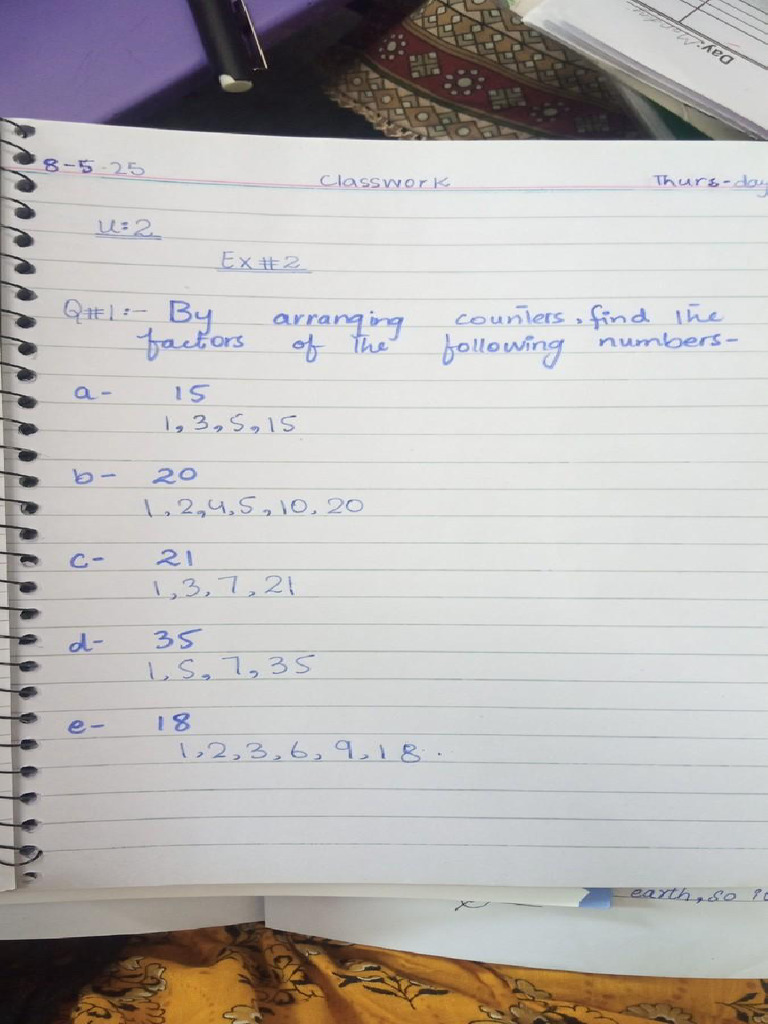 Day: Monday
8-5-25 Classwork Thurs-day
U=2
Ex#2
Q#1:- By arranging counters, find the
factors of the following numbers-
a- 15
1, 3, 5, 15
b- 20
1, 2, 4, 5, 10, 20
c- 21
1, 3, 7, 21
d- 35
1, 5, 7, 35
e- 18
1, 2, 3, 6, 9, 18.
earth, so